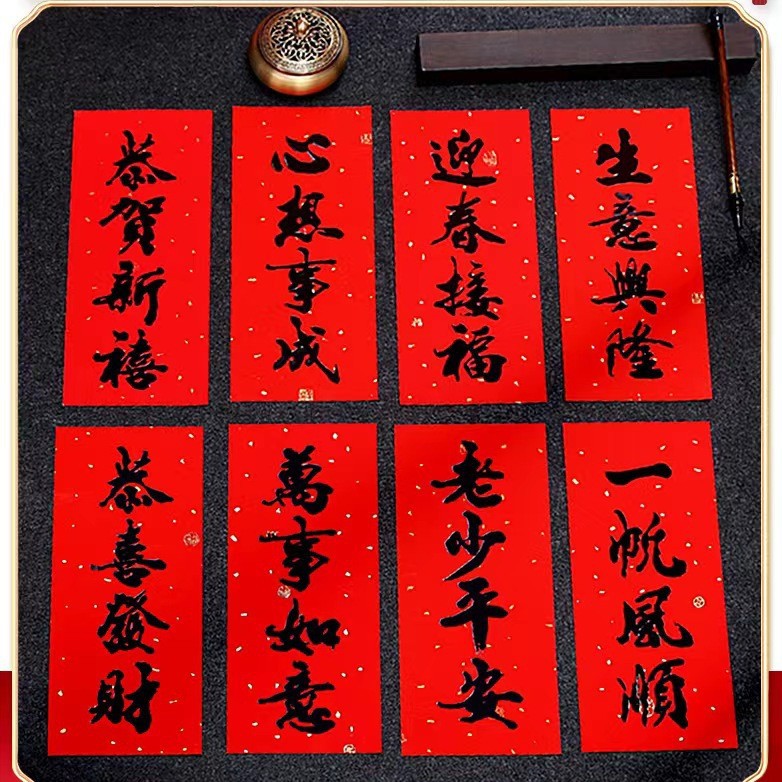 恭賀新禧
心想事成
迎春接福
生意興隆
恭喜發財
萬事如意
老少平安
一帆風順